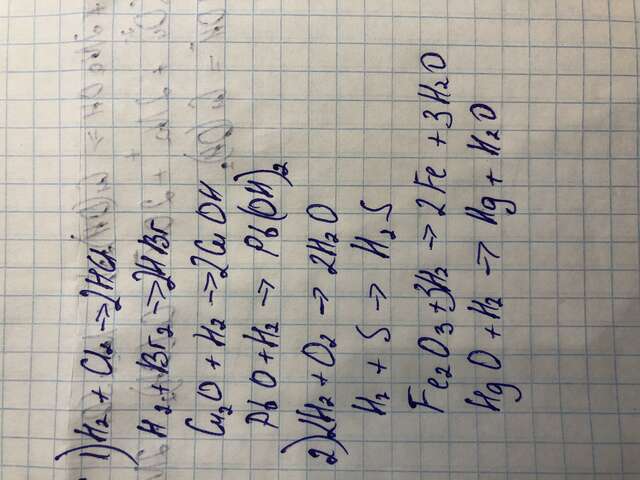 1) H₂ + Cl₂ → 2HCl
H₂ + Br₂ → 2HBr
Cu₂O + H₂ → 2CuOH
PbO + H₂ → Pb(OH)₂
2) 2H₂ + O₂ → 2H₂O
H₂ + S → H₂S
Fe₂O₃ + 3H₂ → 2Fe + 3H₂O
HgO + H₂ → Hg + H₂O